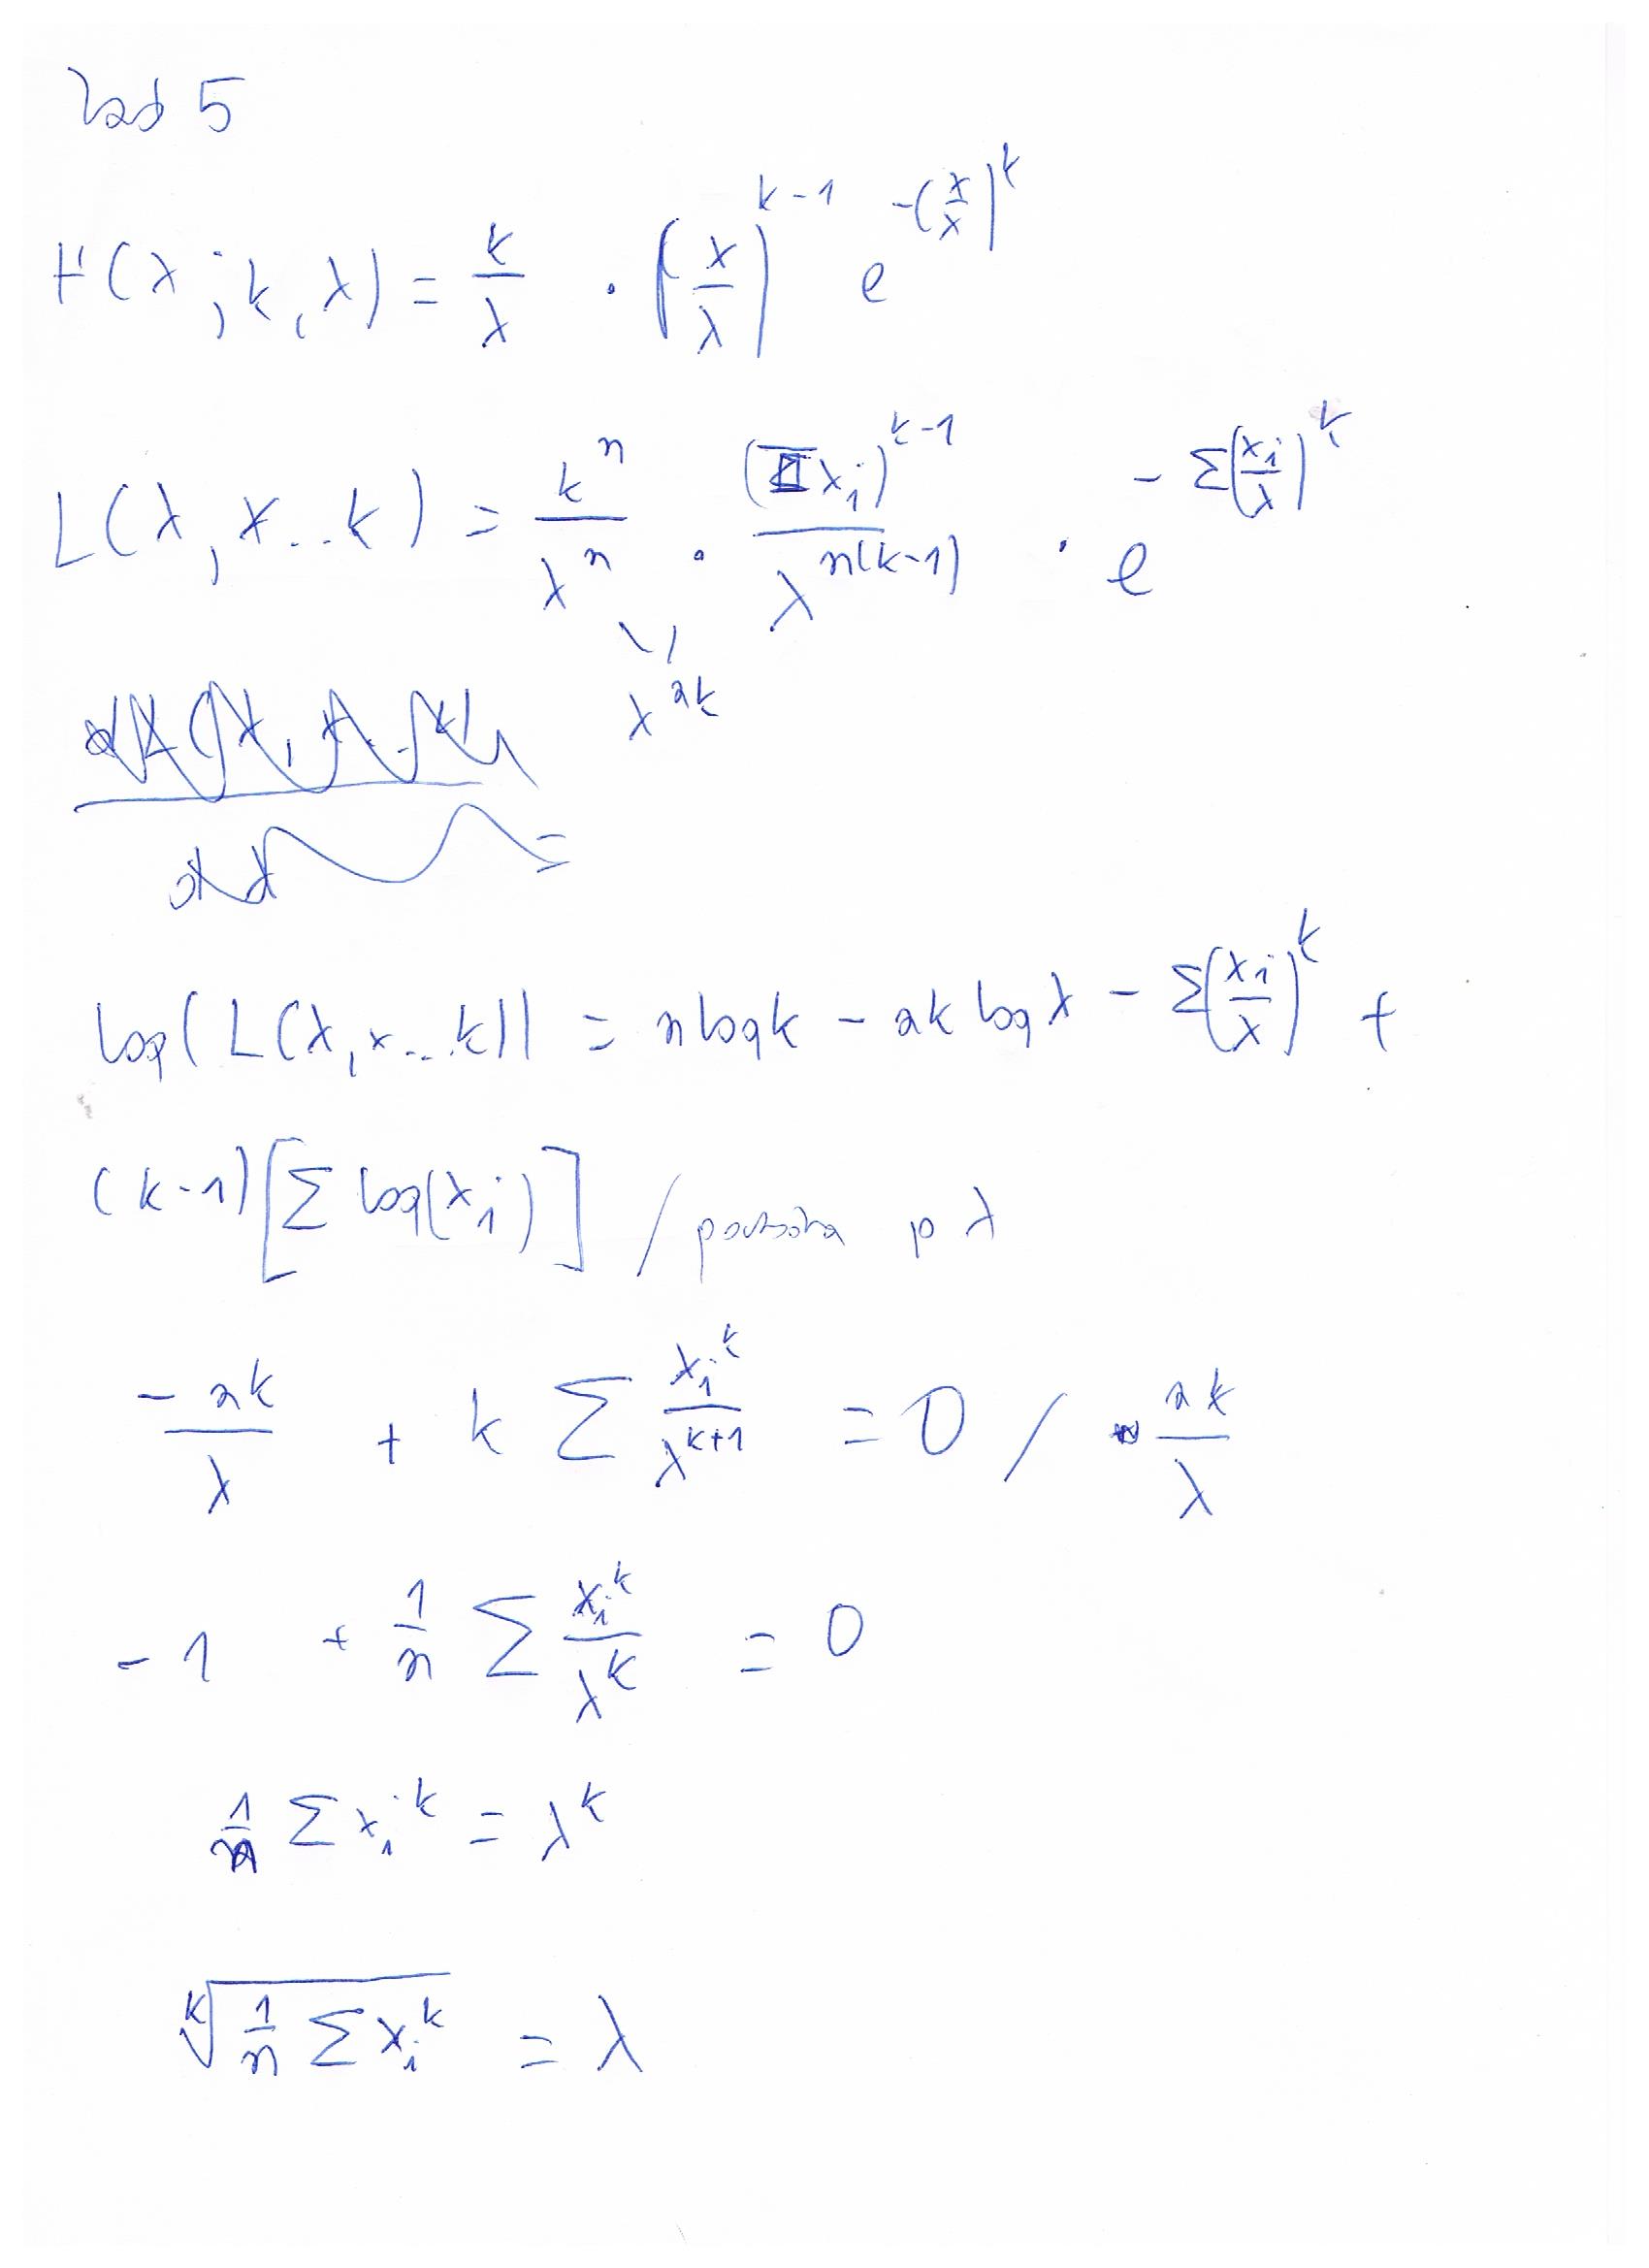 Zad 5
F(x; k, λ) = k/λ · (x/λ)^(k-1) e^(-(x/λ)^k)
L(λ, x..k) = k^n/λ^n · (∏x_i)^(k-1)/λ^(n(k-1)) · e^(-Σ(x_i/λ)^k)
λ^nk
log(L(λ, x...k)) = n log k - nk log λ - Σ(x_i/λ)^k +
(k-1)[Σ log(x_i)] / pochodna p λ
-nk/λ + k Σ x_i^k/λ^(k+1) = 0 / nk/λ
-1 + 1/n Σ x_i^k/λ^k = 0
1/n Σ x_i^k = λ^k
^k√(1/n Σ x_i^k) = λ